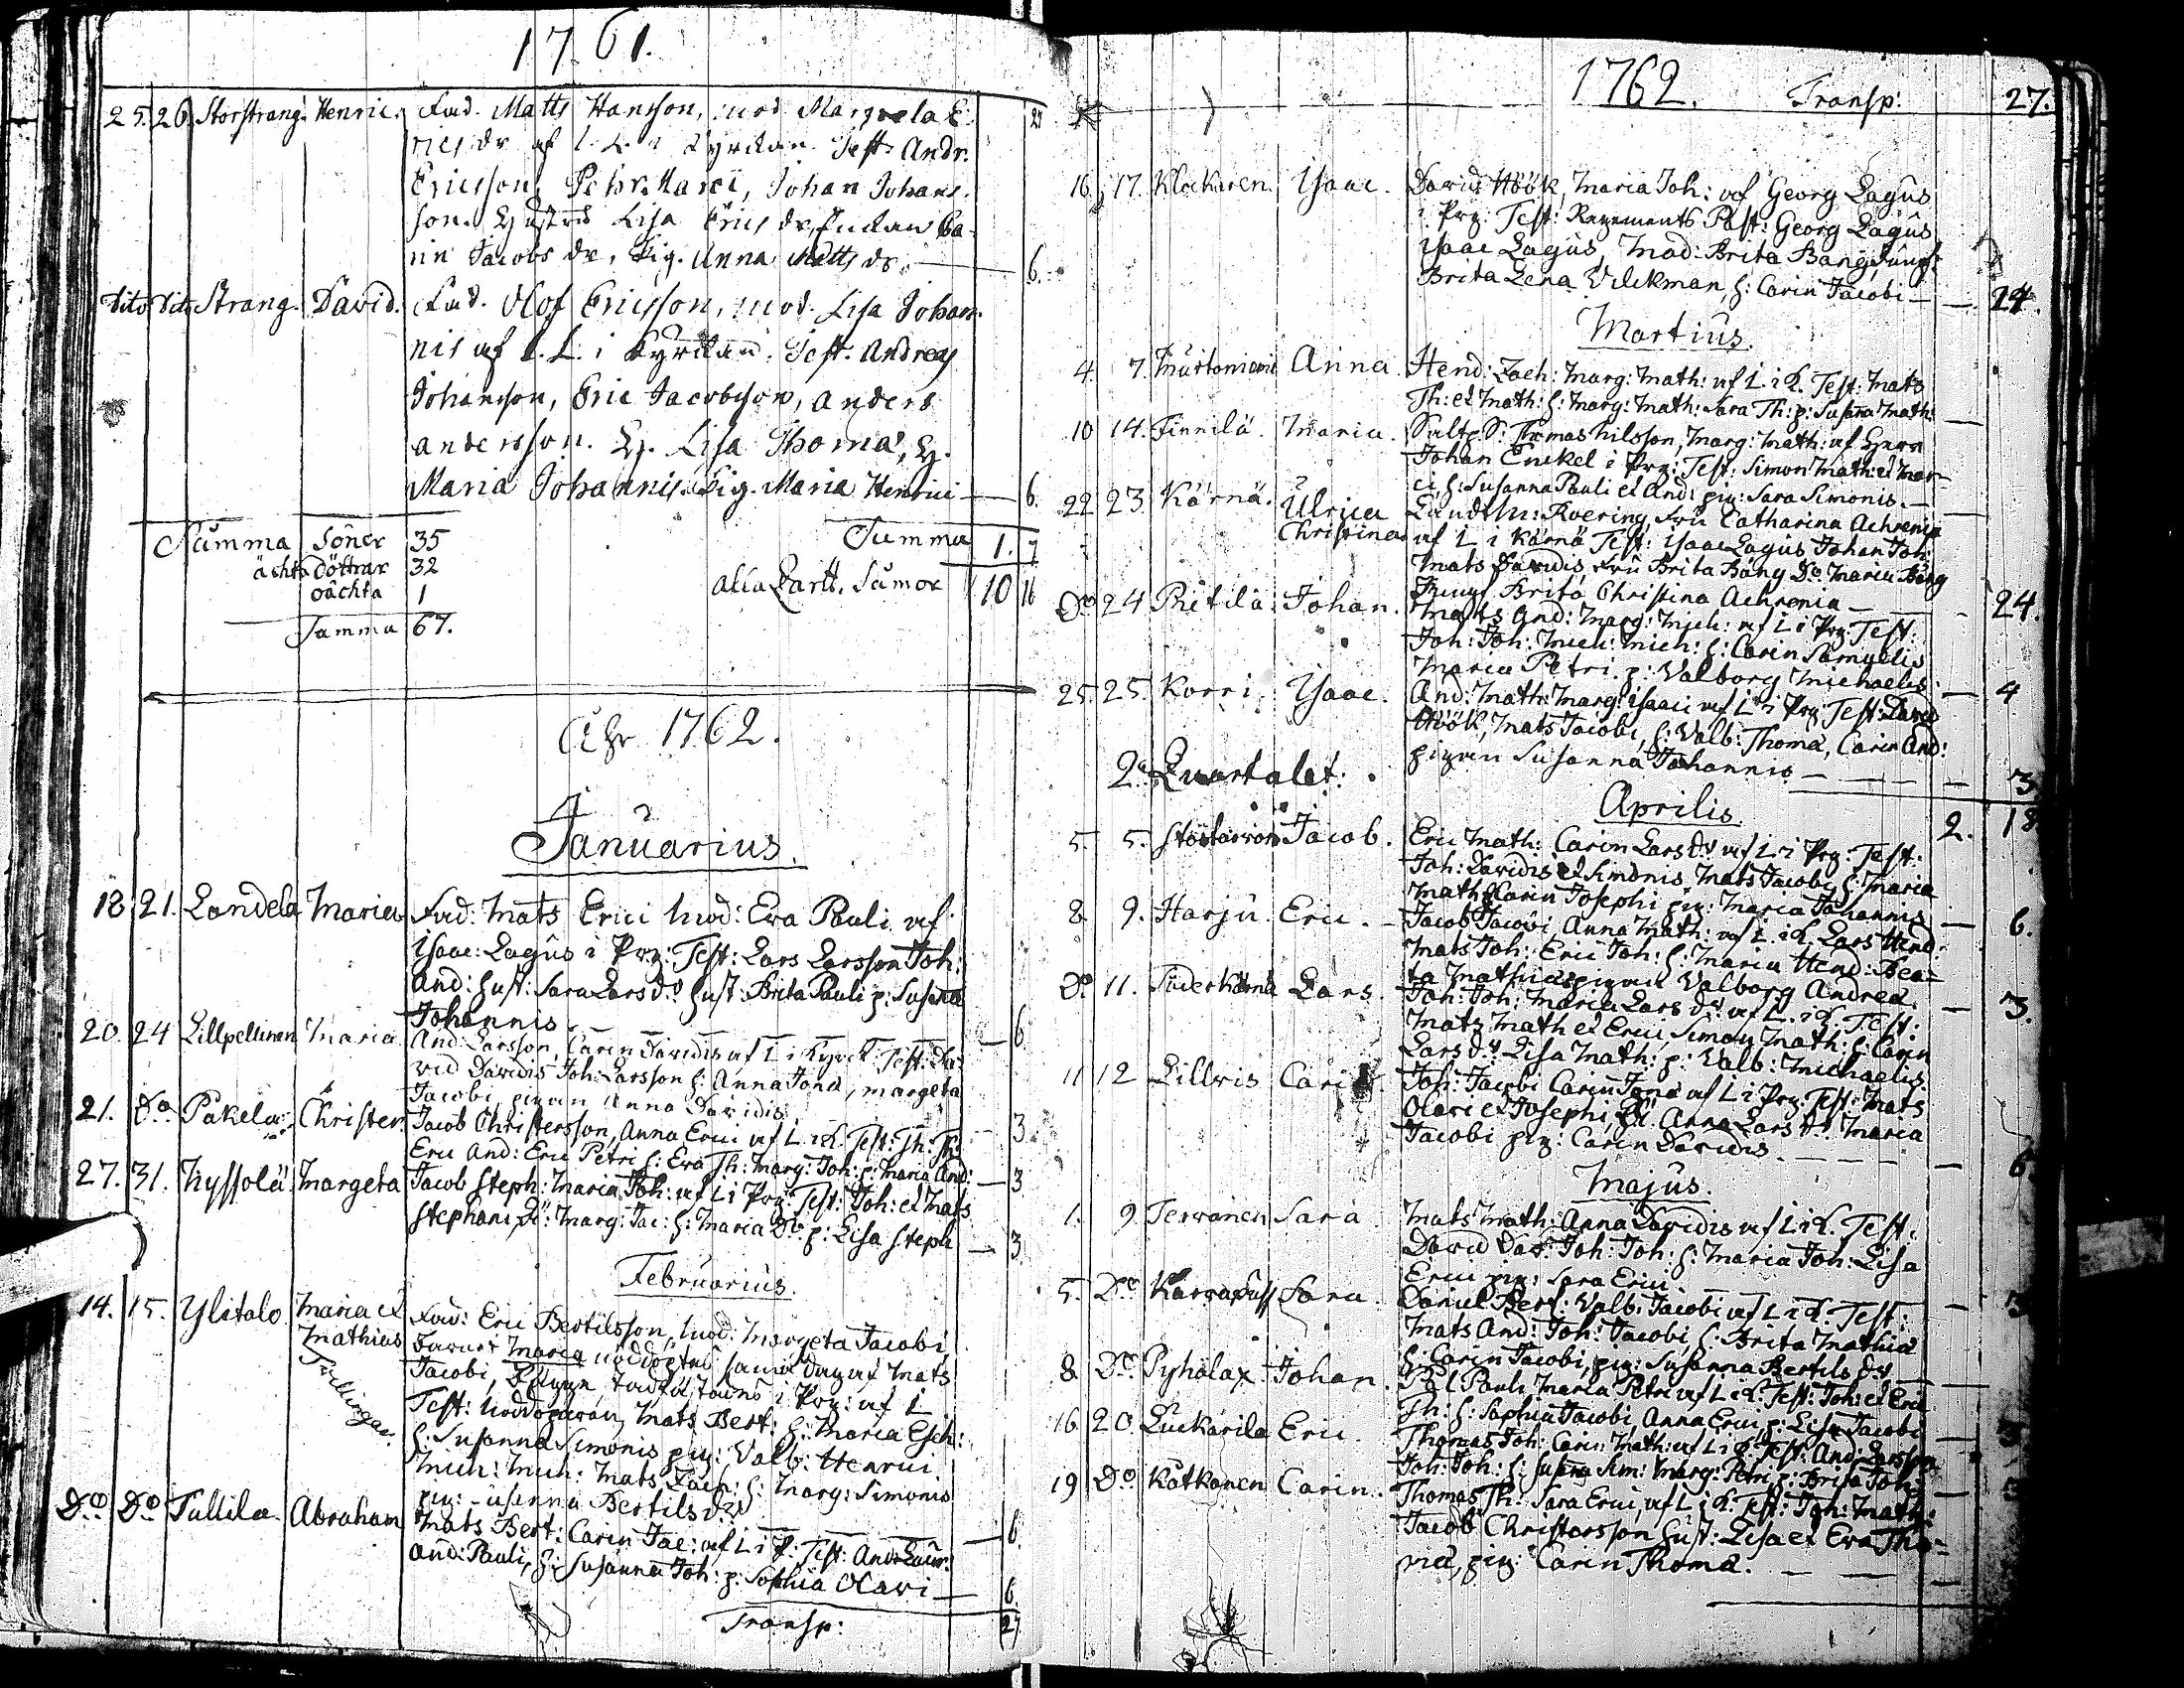 1761.
25. 26. Storstrang. Henric. Fad. Matts Hansson, mod Margreta E 24
rics dr af l. L. i Kyrckan Test. Andr.
Ericsson, Pehr Marci, Johan Johans
son. Hustrus Lisa Erics dr,
rin Jacobs dr, Pig. Anna Matts dr. 6.
Dito Dito Strang. David. Fad. Olof Ericsson, mod. Lisa Johan
nis af l. L. i Kyrckan. Test. Andreas
Johansson, Eric Jacobsson, Anders
Andersson. H. Lisa Thomæ, H.
Maria Johannis. Pig. Maria Henrici 6.
Summa Söner 35 Summa 1. 7
ächta döttrar 32
oächta 1 alla Qvart. Sumor 10 16
Summa 67.
Åhr 1762.
Januarius.
18 21. Landela Maria Fad: Mats Erici mod: Eva Pauli af
Isaac: Lagus i Prg: Test: Lars Larsson Joh:
And: hust: Sara Lars dr hust: Brita Pauli p: Susana
Johannis 6
20. 24 Lillpellinen Maria And: Larsson, Carin Davidis af L i Kyrck: Test: Da-
vid Davidis Joh: Larsson h: Anna Jona, Margeta
Jacobi, pigan Anna Davidis 3
21. Do Pakela Christer. Jacob Christersson, Anna Erici af L i K. Test: Th: Th:
Eric And: Eric Petri h: Eva Th: Marg: Joh: p: Maria And: 3
27. 31. Hyssolä Margeta Jacob Steph: Maria Joh: af L i Prg: Test: Joh: et Mats
Stephani, Marg: Jac: h: Maria Do p: Lisa Steph 3
Februarius.
14. 15. Ylitalo Maria et Fad: Eric Bertilsson, mod: Margeta Jacobi
Mathias barnet Maria nöddöptes samma dag af Mats
Tvillingar. Jacobi, i Prg: af L
Test: Mats Bert: h: Maria Esch:
h: Susanna Simonis pig: Valb: Henrici
Mich: Mich: Mats Zach: h: Marg: Simonis
pig: Susanna Bertils dr 6
Do Do Tullila Abraham Mats Bert: Carin Jac: af L i K: Test: And: Laur:
And: Pauli, h: Susanna Joh: p: Sophia Olavi 6
Transp: 27
1762. Transp: 27.
16. 17. Klockaren. Isaac. David Höök, Maria Joh: af Georg Lagus
i Prg: Test: Regements Past: Georg Lagus
Isaac Lagus, Mad: Brita Bång, Jungf:
Brita Lena Vilckman, h: Carin Jacobi 24.
Martius.
4. 7. Murtoniemi Anna Hend: Zach: Marg: Math: af L. i K. Test: Mats
Th: et Math: h: Marg: Math: Sara Th: p: Susana Math:
10 14. Finnilä. Maria. Thomas Nilsson, Marg: Math: af Herr
Johan Enckel i Prg: Test: Simon Math: et Mar-
ci, h: Susanna Pauli et And: pig: Sara Simonis.
22 23 Kärnä. Ulrica Roering, Fru Catharina Achrenia
Christina af L i Kärnä Test: Isaac Lagus Johan Joh:
Mats Davidis Fru Brita Bång Do Maria Bång
Jungf. Brita Christina Achrenia 24.
Do 24 Prittilä Johan. Mats And: Marg: Mich: af L i Prg: Test:
Joh: Joh: Mich: Mich: h: Carin Samuelis
Maria Petri. p: Valborg Michaelis 4
25. 25. Korri. Isaac. And: Math: Marg: Isaaci af L i Prg: Test: David
Höök, Mats Jacobi, h: Valb: Thomæ, Carin And:
pigan Susanna Johannis 3
2a Quartalet. 2. 18
Aprilis.
5. 5. Jacob. Eric Math: Carin Lars dr af L i Prg: Test:
Joh: Davidis et Simonis Mats Jacobi h: Maria
Math: Carin Josephi pig: Maria Johannis 6.
8 9. Harju. Eric. Jacob Jacobi, Anna Math: af L. i K. Lars Hend:
Mats Joh: Eric Joh: h: Maria Hend: Bea-
ta Mathiæ pigan Valborg Andreæ 3.
Do 11. Söderkärnä Lars. Joh: Joh: Maria Lars dr af L. i K. Test:
Mats Math et Erici Simon Math: h: Carin
Lars dr Lisa Math: p: Valb: Michaelis
11 12 Lillvis Carin Joh: Jacobi Carin Jona af L i Prg: Test: Mats
Olavi et Josephi, Anna Lars dr Maria
Jacobi pig: Carin Davidis 6
Majus.
1. 9. Terranen Sara Mats Math: Anna Davidis af L i K. Test:
David Dav: Joh: Joh: h: Maria Joh: Lisa
Erici pig: Sara Erici 3
5. Do Sara. Daniel Bert: Valb: Jacobi af L i K. Test:
Mats And: Joh: Jacobi, h: Brita Mathiæ
h: Carin Jacobi, pig: Susanna Bertils dr
8 Do Pyhälax Johan. Pål Pauli Maria Petri af L i K. Test: Joh: et Eric
Th: h: Sophia Jacobi, Anna Erici, p: Lisa Jacobi 3
16 20. Luckarila Eric Thomas Joh: Carin Math: af L i K. Test: And: Larsson
Joh: Joh: h: Susana Sim: Marg: Petri p: Brita Joh: 3
19 Do Kätkänen Carin. Thomas Th: Sara Erici, af L i K. Test: Joh: Math:
Jacob Christersson hust: Lisa et Eva Tho-
mæ, pig: Carin Thomæ.